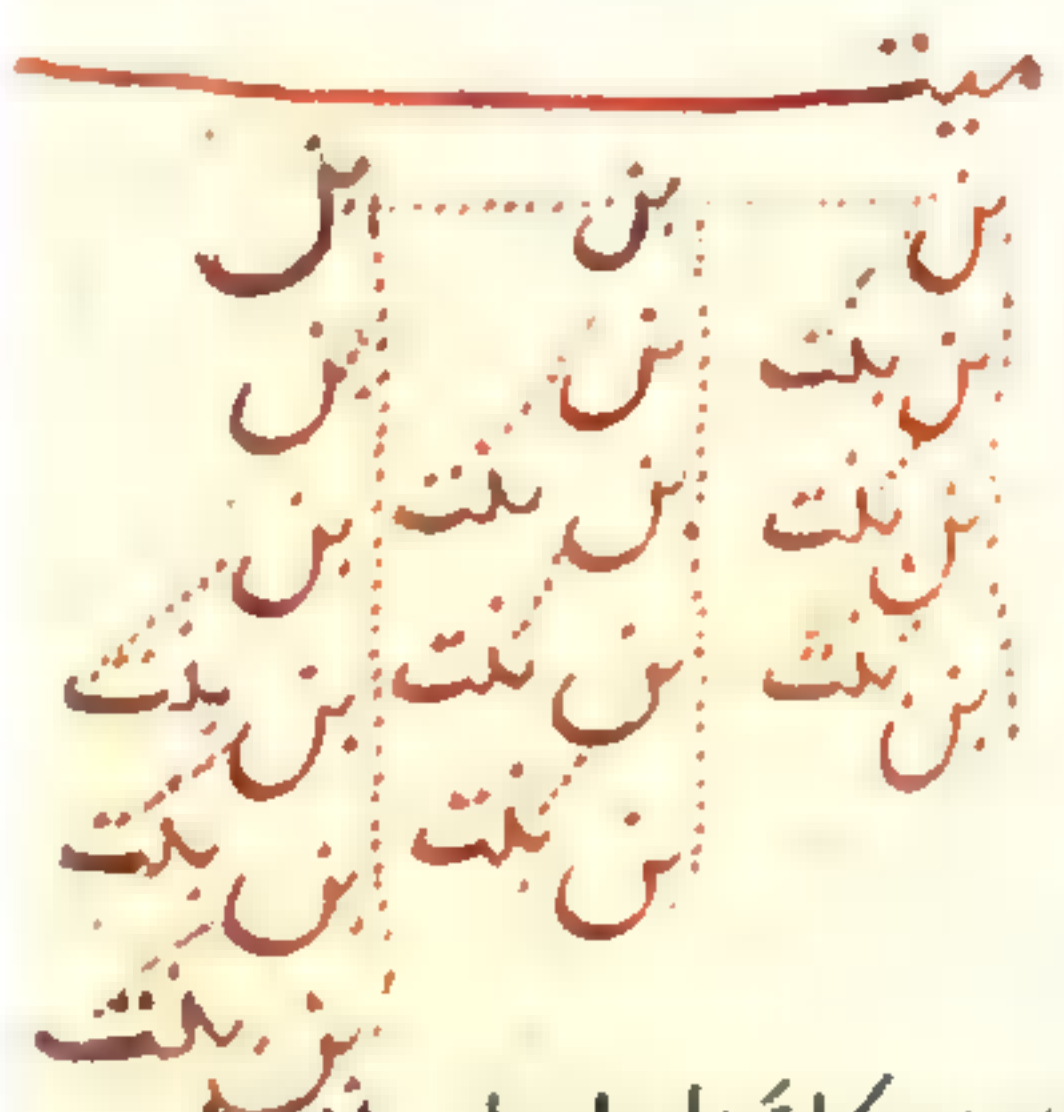 ميت
بن بن بن
بن بنت بن بن
بن بنت بن بنت بن
بن بنت بن بنت بن بنت
بن بنت بن بنت
بن بنت